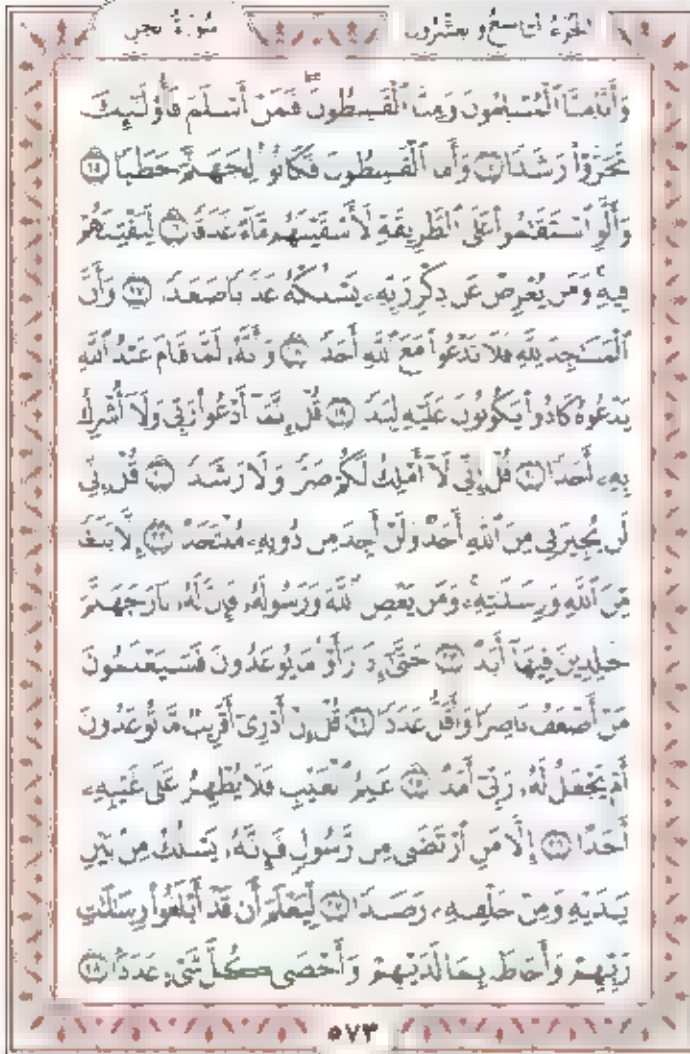 سُورَةُ الجِنّ الجُزءُ التَّاسِعُ وَالعِشْرُونَ
وَأَنَّا مِنَّا ٱلْمُسْلِمُونَ وَمِنَّا ٱلْقَٰسِطُونَ ۖ فَمَنْ أَسْلَمَ فَأُو۟لَٰٓئِكَ
تَحَرَّوْا۟ رَشَدًا ١٤ وَأَمَّا ٱلْقَٰسِطُونَ فَكَانُوا۟ لِجَهَنَّمَ حَطَبًا ١٥
وَأَلَّوِ ٱسْتَقَٰمُوا۟ عَلَى ٱلطَّرِيقَةِ لَأَسْقَيْنَٰهُم مَّآءً غَدَقًا ١٦ لِّنَفْتِنَهُمْ
فِيهِ ۚ وَمَن يُعْرِضْ عَن ذِكْرِ رَبِّهِۦ يَسْلُكْهُ عَذَابًا صَعَدًا ١٧ وَأَنَّ
ٱلْمَسَٰجِدَ لِلَّهِ فَلَا تَدْعُوا۟ مَعَ ٱللَّهِ أَحَدًا ١٨ وَأَنَّهُۥ لَمَّا قَامَ عَبْدُ ٱللَّهِ
يَدْعُوهُ كَادُوا۟ يَكُونُونَ عَلَيْهِ لِبَدًا ١٩ قُلْ إِنَّمَآ أَدْعُوا۟ رَبِّى وَلَآ أُشْرِكُ
بِهِۦٓ أَحَدًا ٢٠ قُلْ إِنِّى لَآ أَمْلِكُ لَكُمْ ضَرًّا وَلَا رَشَدًا ٢١ قُلْ إِنِّى
لَن يُجِيرَنِى مِنَ ٱللَّهِ أَحَدٌ وَلَنْ أَجِدَ مِن دُونِهِۦ مُلْتَحَدًا ٢٢ إِلَّا بَلَٰغًا
مِّنَ ٱللَّهِ وَرِسَٰلَٰتِهِۦ ۚ وَمَن يَعْصِ ٱللَّهَ وَرَسُولَهُۥ فَإِنَّ لَهُۥ نَارَ جَهَنَّمَ
خَٰلِدِينَ فِيهَآ أَبَدًا ٢٣ حَتَّىٰٓ إِذَا رَأَوْا۟ مَا يُوعَدُونَ فَسَيَعْلَمُونَ
مَنْ أَضْعَفُ نَاصِرًا وَأَقَلُّ عَدَدًا ٢٤ قُلْ إِنْ أَدْرِىٓ أَقَرِيبٌ مَّا تُوعَدُونَ
أَمْ يَجْعَلُ لَهُۥ رَبِّىٓ أَمَدًا ٢٥ عَٰلِمُ ٱلْغَيْبِ فَلَا يُظْهِرُ عَلَىٰ غَيْبِهِۦٓ
أَحَدًا ٢٦ إِلَّا مَنِ ٱرْتَضَىٰ مِن رَّسُولٍ فَإِنَّهُۥ يَسْلُكُ مِنۢ بَيْنِ
يَدَيْهِ وَمِنْ خَلْفِهِۦ رَصَدًا ٢٧ لِّيَعْلَمَ أَن قَدْ أَبْلَغُوا۟ رِسَٰلَٰتِ
رَبِّهِمْ وَأَحَاطَ بِمَا لَدَيْهِمْ وَأَحْصَىٰ كُلَّ شَىْءٍ عَدَدًۢا ٢٨
٥٧٣